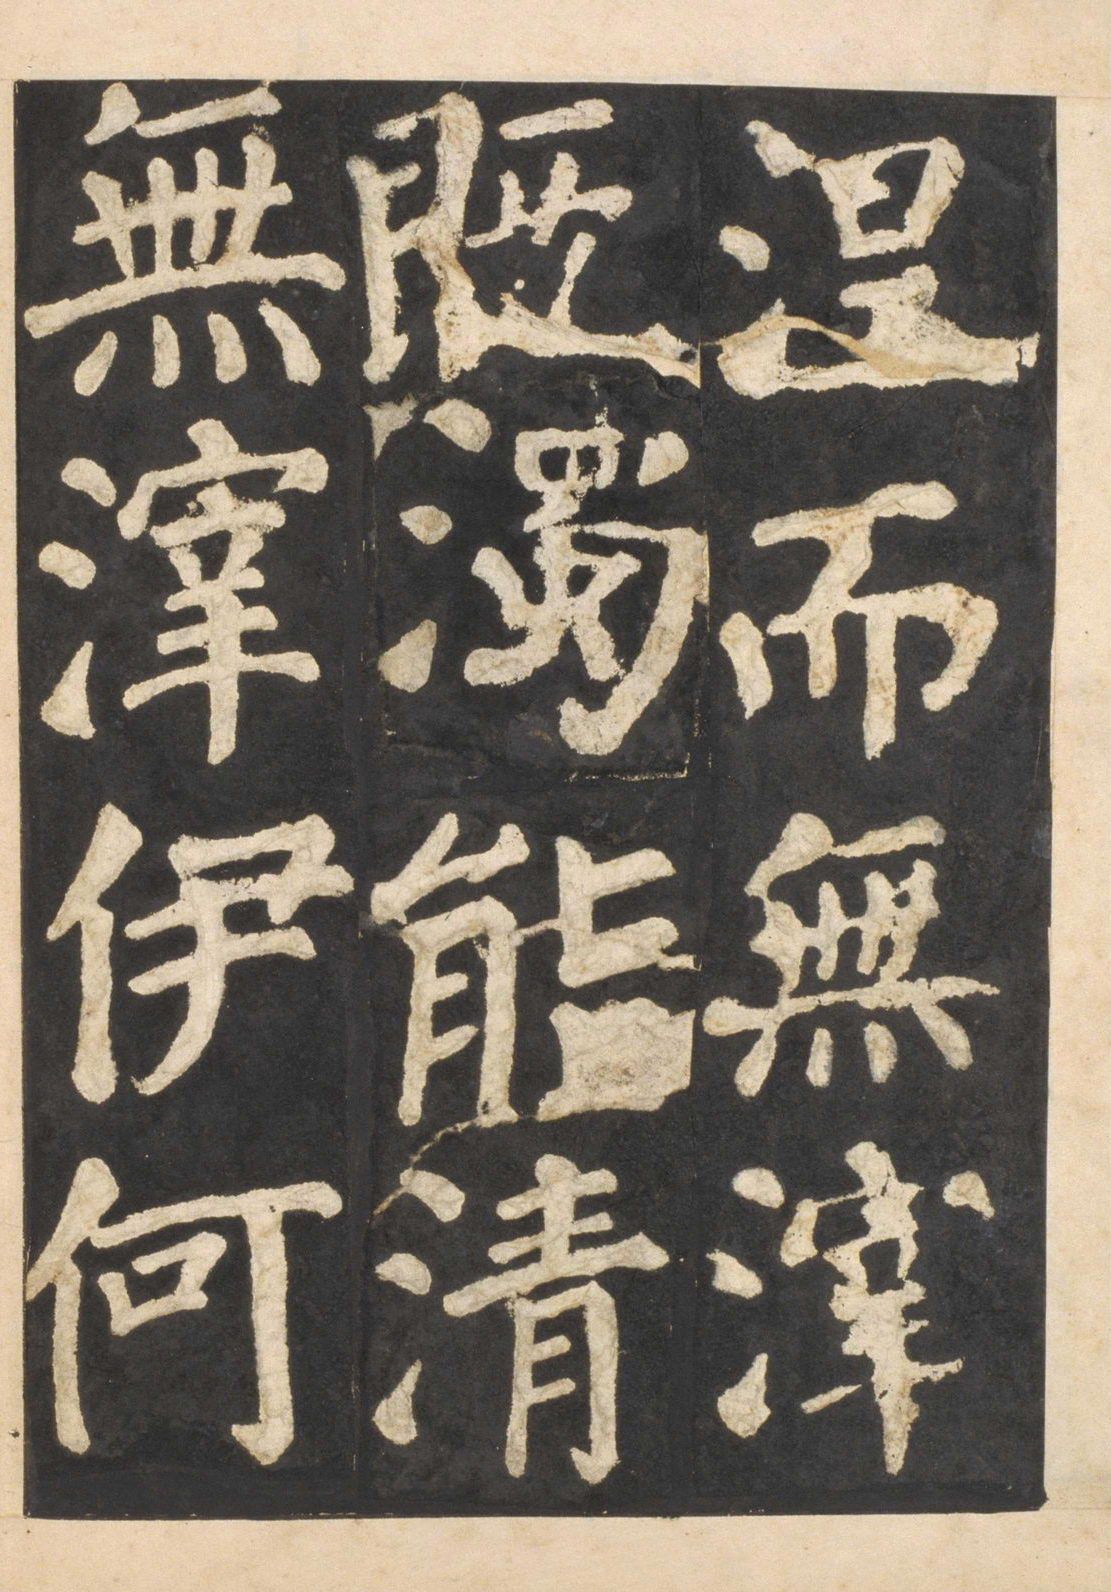 涅而無滓
既濁能清
無滓伊何